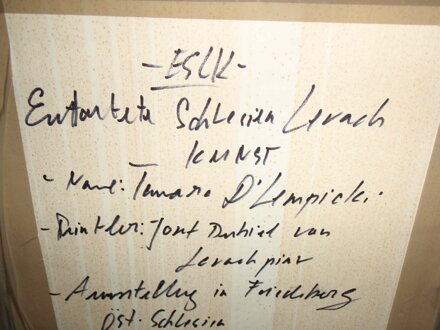 - ESLK -
Entartete Schlesien Lerach
KUNST
- Name: Tamara D'Lempicki.
- Direktor: Jost Dubiel van
Lerachpinx
- Ausstellung in Friedeberg
Öst. Schlesien